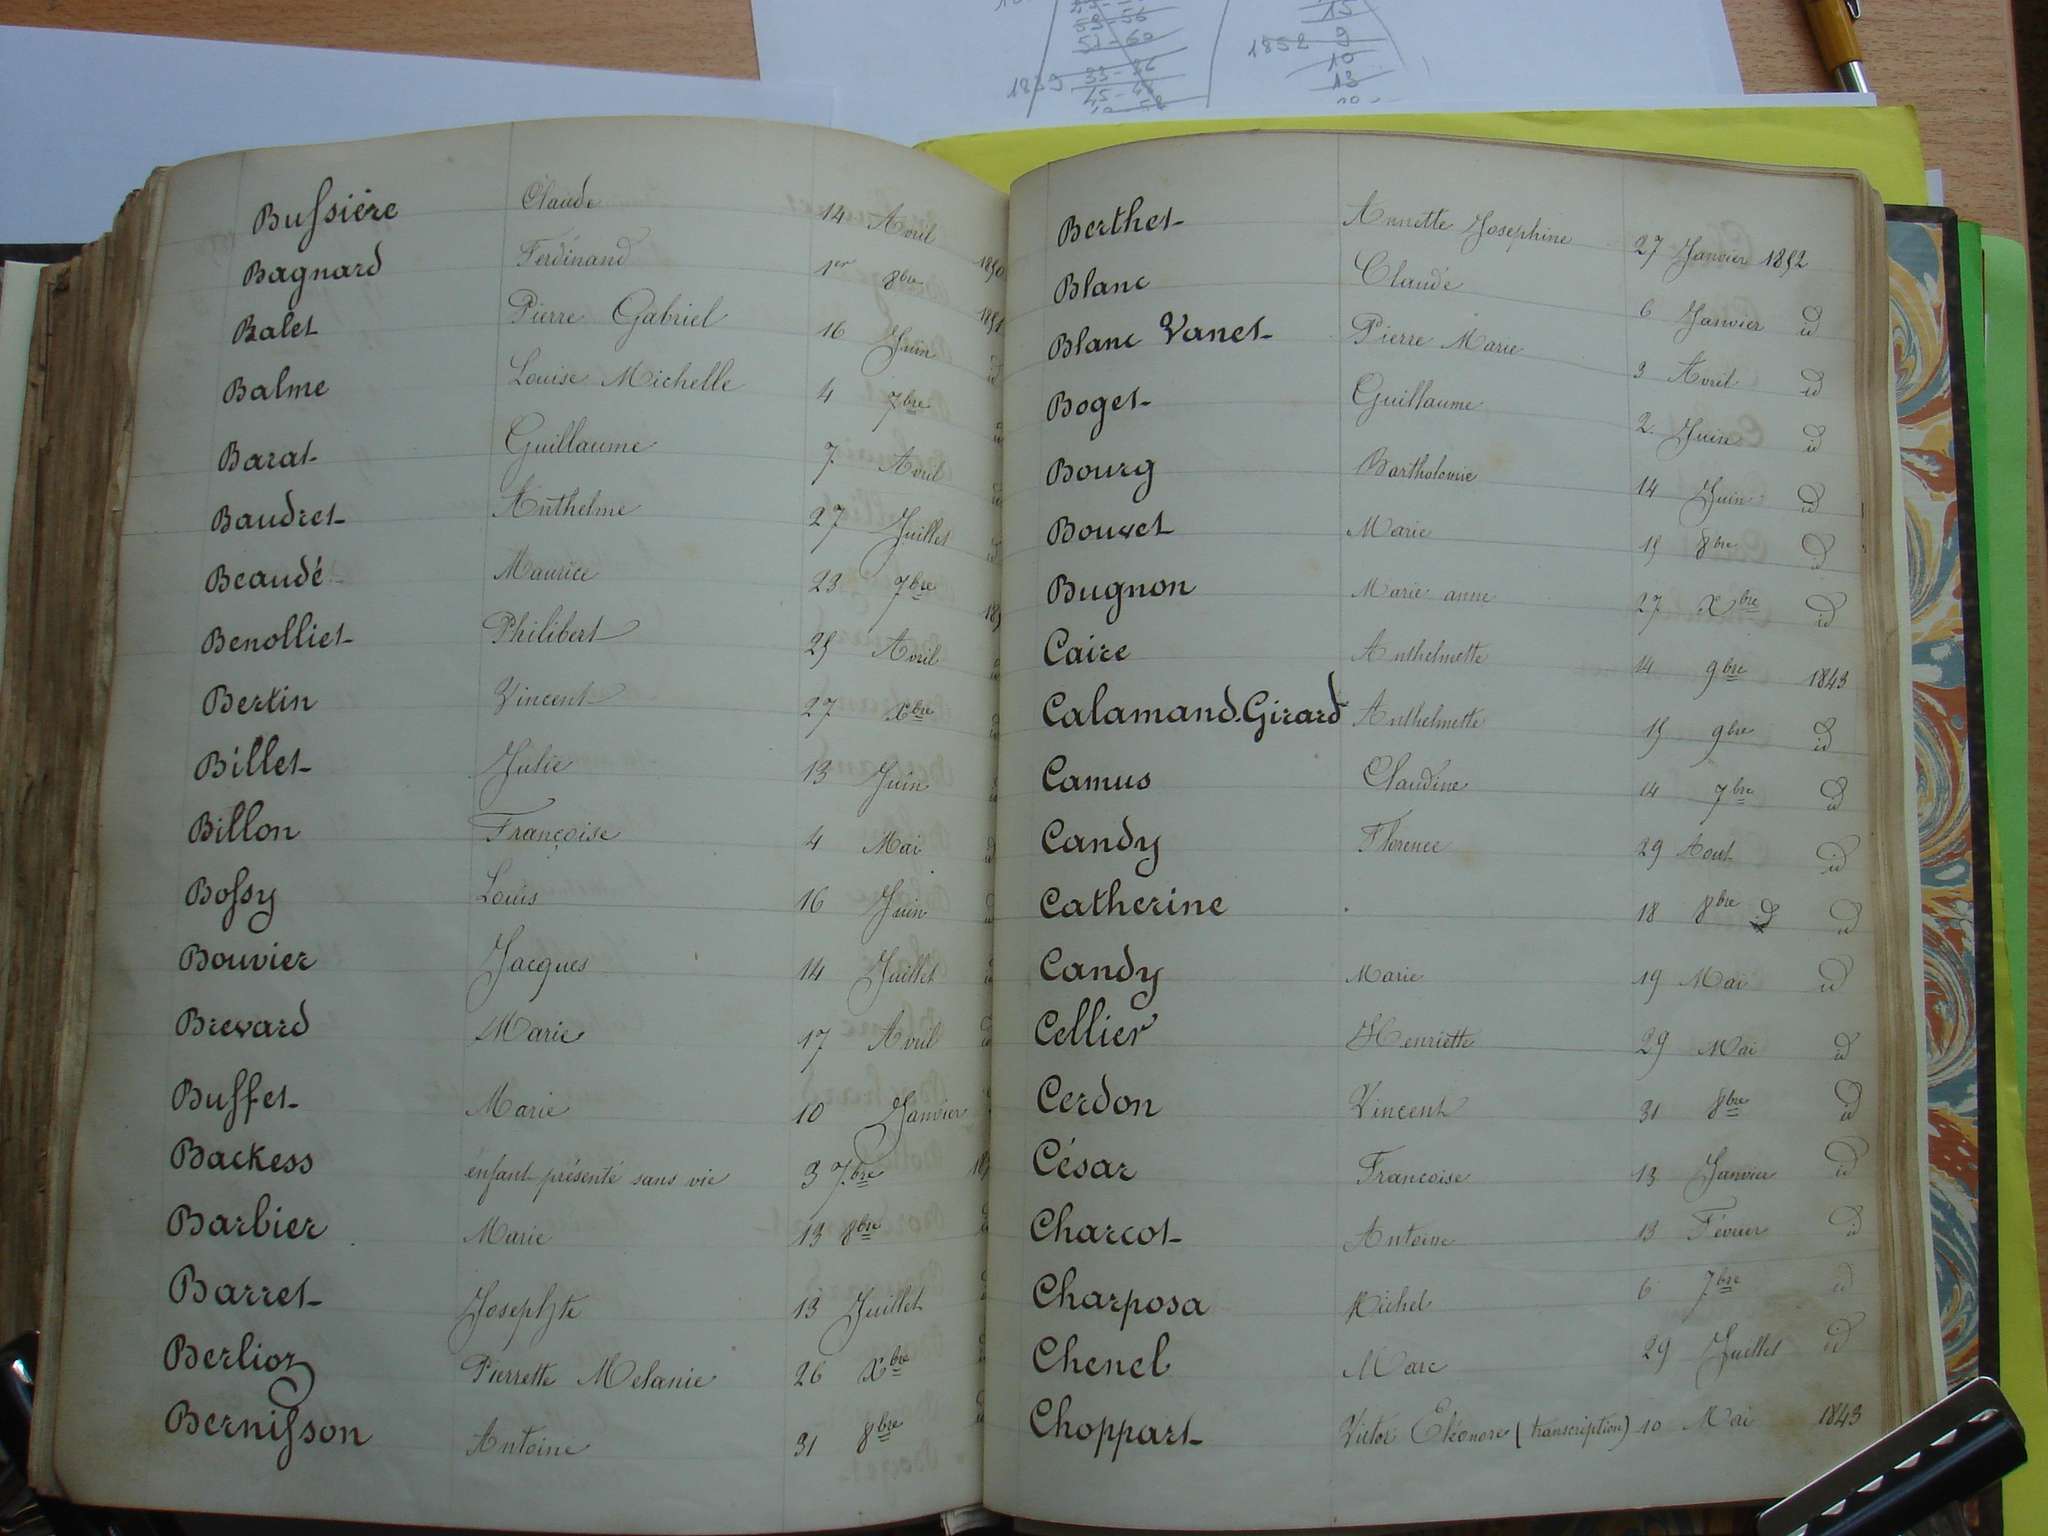 53-56
57-60
1852 9
10
13
1839 33-36
Bussière Claude 14 Avril
Bagnard Ferdinand 1er 8bre 1850
Balet Pierre Gabriel 16 Juin 1851
Balme Louise Michelle 4 7bre id
Barat Guillaume 7 Avril id
Baudret Anthelme 27 Juillet id
Beaudé Maurice 23 7bre id
Benolliet Philibert 25 Avril
Bertin Vincent 27 Xbre id
Billet Julie 13 Juin id
Billon Françoise 4 Mai id
Bossy Louis 16 Juin id
Bouvier Jacques 14 Juillet id
Brevard Marie 17 Avril id
Buffet Marie 10 Janvier
Backess enfant présenté sans vie 3 7bre
Barbier Marie 13 8bre
Barret Josephte 13 Juillet
Berlioz Pierrette Melanie 26 Xbre
Bernisson Antoine 31 8bre
Berthet Annette Josephine 27 Janvier 1852
Blanc Claude 6 Janvier id
Blanc Vanet Pierre Marie 3 Avril id
Boget Guillaume 2 Juin id
Bourg Bartholomie 14 Juin id
Bouvet Marie 15 8bre id
Bugnon Marie anne 27 Xbre id
Caire Anthelmette 14 9bre 1843
Calamand-Girard Anthelmette 15 9bre id
Camus Claudine 14 7bre id
Candy Florence 29 Aout id
Catherine 18 8bre id id
Candy Marie 19 Mai id
Cellier Henriette 29 Mai id
Cerdon Vincent 31 8bre id
César Francoise 13 Janvier id
Charcot Antoine 13 Février id
Charposa Michel 6 7bre id
Chenel Marc 29 Juillet id
Choppart Victor Eléonore (transcription) 10 Mai 1843